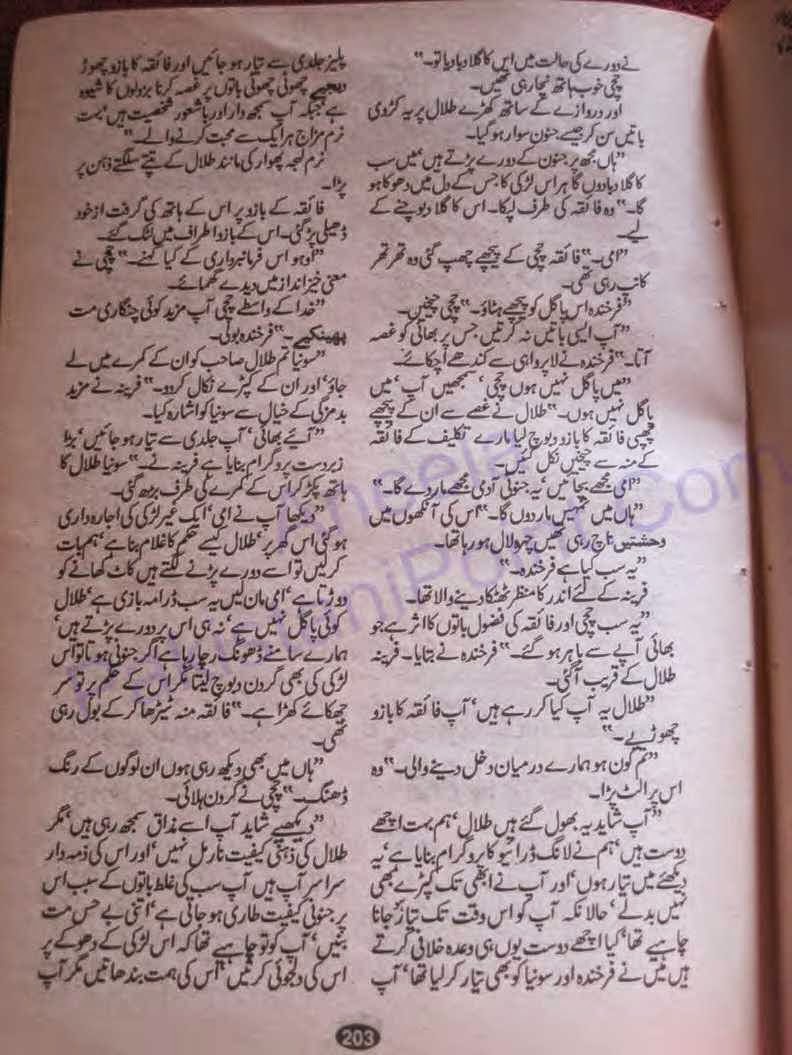 نے دورے کی حالت میں اس کا گلا دبا دیا تو۔"
چچی خوب ہاتھ نچا رہی تھیں۔
اور دروازے کے ساتھ کھڑے طلال پر یہ کڑوی
باتیں سن کر جیسے جنون سوار ہو گیا۔
"ہاں مجھ پر جنون کے دورے پڑتے ہیں' میں سب
کا گلا دبا دوں گا ہر اس لڑکی کا جس کے دل میں دھوکا ہو
گا۔" وہ فائقہ کی طرف لپکا۔ اس کا گلا دبوچنے کے
لیے۔
"امی۔" فائقہ چچی کے پیچھے چھپ گئی وہ تھر تھر
کانپ رہی تھی۔
"فرخندہ اس پاگل کو پیچھے ہٹاؤ۔" چچی چیخیں۔
"آپ ایسی باتیں نہ کرتیں جس پر بھائی کو غصہ
آتا۔" فرخندہ نے لاپرواہی سے کندھے اچکائے۔
"میں پاگل نہیں ہوں چچی' سمجھیں آپ' میں
پاگل نہیں ہوں۔" طلال نے غصے سے ان کے پیچھے
چھپی فائقہ کا بازو دبوچ لیا مارے تکلیف کے فائقہ
کے منہ سے چیخیں نکل گئیں۔
"امی مجھے بچائیں' یہ جنونی آدمی مجھے مار دے گا۔"
"ہاں میں تمہیں مار دوں گا۔" اس کی آنکھوں میں
وحشتیں ناچ رہی تھیں چہرہ لال ہو رہا تھا۔
"یہ سب کیا ہے فرخندہ۔"
فرینہ کے لئے اندر کا منظر ٹھٹکا دینے والا تھا۔
"یہ سب چچی اور فائقہ کی فضول باتوں کا اثر ہے جو
بھائی آپے سے باہر ہو گئے۔" فرخندہ نے بتایا۔ فرینہ
طلال کے قریب آ گئی۔
"طلال یہ آپ کیا کر رہے ہیں' آپ فائقہ کا بازو
چھوڑیے۔"
"تم کون ہو ہمارے درمیان دخل دینے والی۔" وہ
اس پر الٹ پڑا۔
"آپ شاید یہ بھول گئے ہیں طلال' ہم بہت اچھے
دوست ہیں' ہم نے لانگ ڈرائیو کا پروگرام بنایا ہے' یہ
دیکھئے میں تیار ہوں' اور آپ نے ابھی تک کپڑے بھی
نہیں بدلے' حالانکہ آپ کو اس وقت تک تیار ہو جانا
چاہیے تھا' کیا اچھے دوست یوں ہی وعدہ خلافی کرتے
ہیں میں نے فرخندہ اور سونیا کو بھی تیار کر لیا تھا' آپ
پلیز جلدی سے تیار ہو جائیں اور فائقہ کا بازو چھوڑ
دیجیے چھوٹی چھوٹی باتوں پر غصہ کرنا بزدلوں کا شیوہ
ہے جبکہ آپ سمجھ دار اور باشعور شخصیت ہیں' بہت
نرم مزاج ہر ایک سے محبت کرنے والے۔"
نرم لہجہ پھوار کی مانند طلال کے تپتے سلگتے ذہن پر
پڑا۔
فائقہ کے بازو پر اس کے ہاتھ کی گرفت از خود
ڈھیلی پڑ گئی۔ اس کے بازو اطراف میں لٹک گئے۔
"اوہو اس فرمانبرداری کے کیا کہنے۔" چچی نے
معنی خیز انداز میں دیدے گھمائے۔
"خدا کے واسطے چچی آپ مزید کوئی چنگاری مت
پھینکیے۔" فرخندہ بولی۔
"سونیا تم طلال صاحب کو ان کے کمرے میں لے
جاؤ' اور ان کے کپڑے نکال کر دو۔" فرینہ نے مزید
بدمزگی کے خیال سے سونیا کو اشارہ کیا۔
"آئیے بھائی' آپ جلدی سے تیار ہو جائیں' بڑا
زبردست پروگرام بنایا ہے فرینہ نے۔" سونیا طلال کا
ہاتھ پکڑ کر اس کے کمرے کی طرف بڑھ گئی۔
"دیکھا آپ نے امی' ایک غیر لڑکی کی اجارہ داری
ہو گئی اس گھر پر' طلال کیسے حکم کا غلام بنا ہے' ہم بات
کر لیں تو اسے دورے پڑنے لگتے ہیں کاٹ کھانے کو
دوڑتا ہے' امی مان لیں یہ سب ڈرامہ بازی ہے' طلال
کوئی پاگل نہیں ہے' نہ ہی اس پر دورے پڑتے ہیں'
ہمارے سامنے ڈھونگ رچا رہا ہے اگر جنونی ہوتا تو اس
لڑکی کی بھی گردن دبوچ لیتا مگر اس کے حکم پر تو سر
جھکائے کھڑا ہے۔" فائقہ منہ ٹیڑھا کر کے بول رہی
تھی۔
"ہاں میں بھی دیکھ رہی ہوں ان لوگوں کے رنگ
ڈھنگ۔" چچی نے گردن ہلائی۔
"دیکھیے شاید آپ اسے مذاق سمجھ رہی ہیں' مگر
طلال کی ذہنی کیفیت نارمل نہیں' اور اس کی ذمہ دار
سراسر آپ ہیں آپ سب کی غلط باتوں کے سبب اس
پر جنونی کیفیت طاری ہو جاتی ہے' اتنی بے حس مت
بنیں' آپ کو تو چاہیے تھا کہ اس لڑکی کے دھوکے پر
اس کی دلجوئی کرتیں' اس کی ہمت بندھاتیں مگر آپ
203